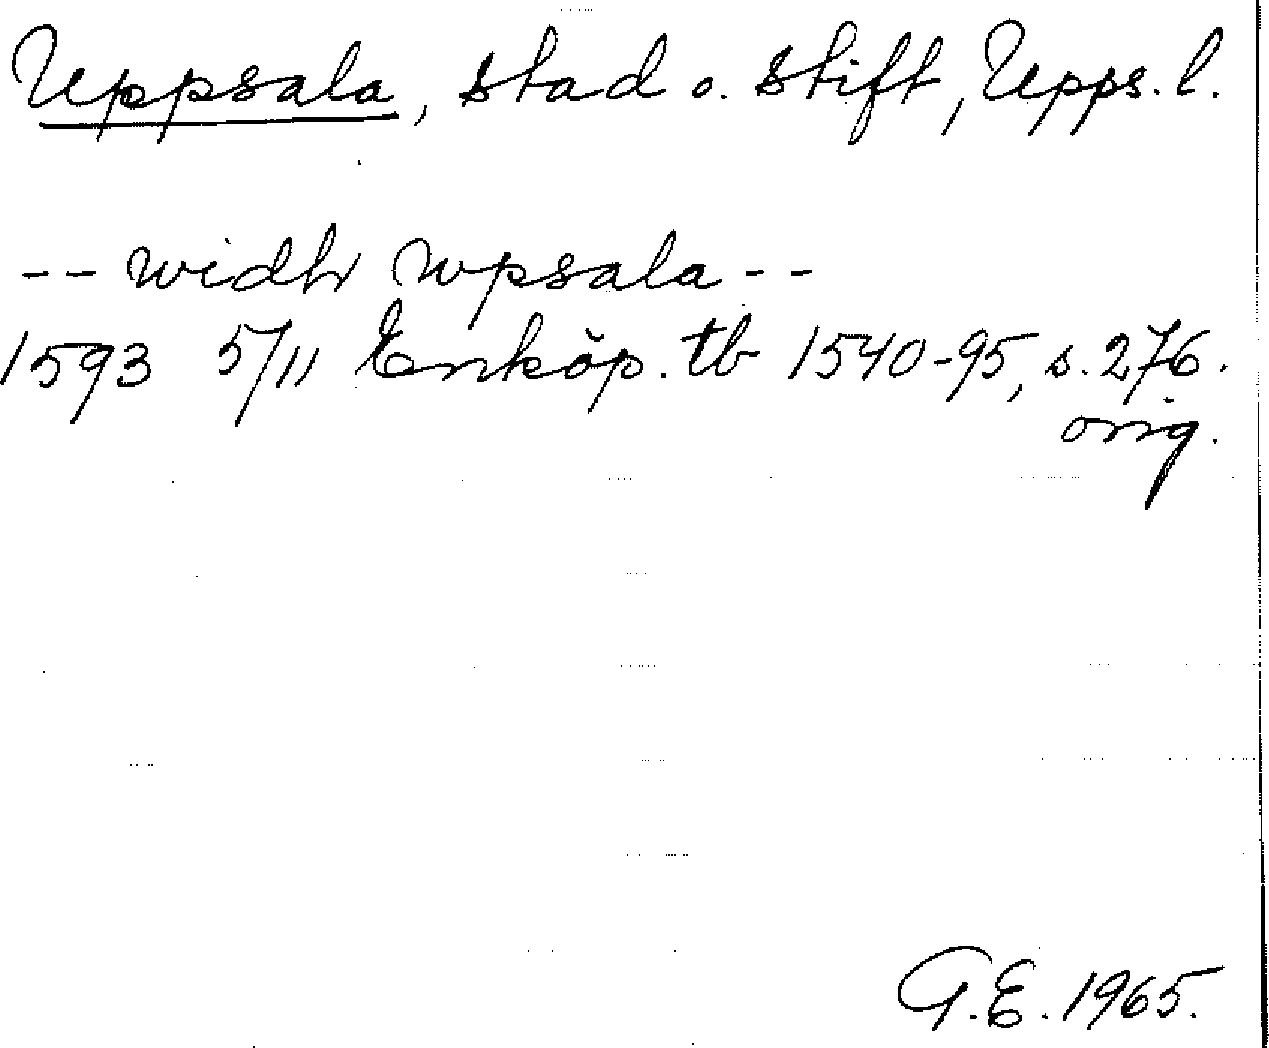 Uppsala, stad o. stift, Upps. l.
-- widh wpsala --
1593 5/11 Enköp. tb 1540-95, s. 276.
orig.
G.E. 1965.